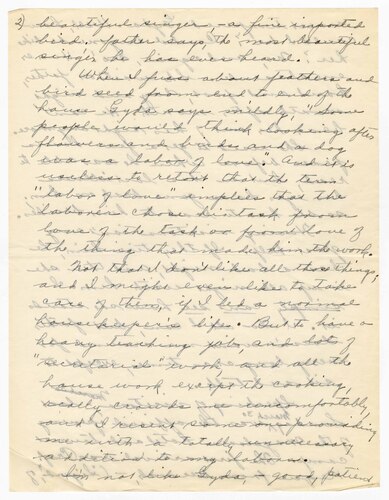 2) beautiful singer - a fine imported
bird, father says, "the most beautiful
singer he has ever heard.
When I fuss about feathers and
bird seed from end to end of the
house Gyda says mildly, "Some
people would think looking after
flowers and birds and a dog
was a labor of love." And it is
useless to retort that the term
"labor of love" implies that the
laborer chose his task from
love of the task or from love of
the thing that made him the work.
Not that I don't like all those things,
and I might even like to take
care of them, if I led a normal
housekeeper's life. But to have a
heavy teaching job, and lots of
"secretarial" work, and all the
house work except the cooking,
really crowds me uncomfortably,
and I resent someone providing
me with a totally unnecessary
addition to my labors.
I'm not, like Gyda, a good, patient